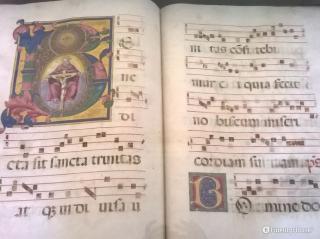 B e
ne
di
cta sit sancta trinitas
at q̃ in di uisa u
ni tas cōfi tebi
mur ei quia fecit
no biscum miseri
cordiam su am ps
mine